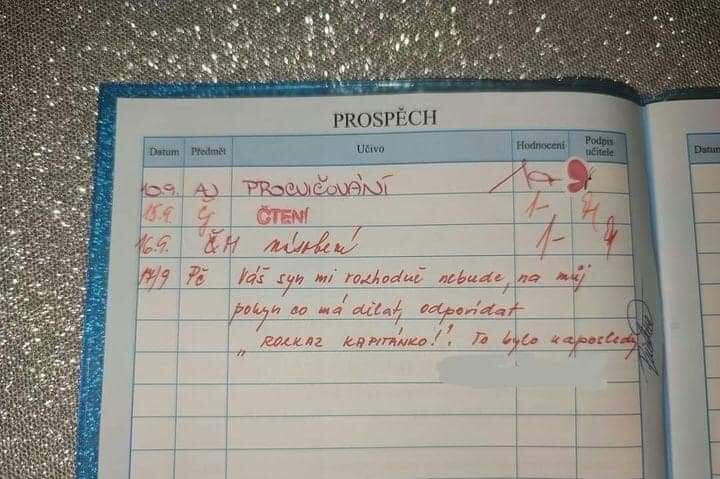 PROSPĚCH
Datum Předmět Učivo Hodnocení Podpis učitele
10.9. AJ PROCVIČOVÁNÍ 1
15.9. Čj ČTENÍ 1-
16.9. ČH násobení 1-
17/9 Pč Váš syn mi rozhodně nebude, na můj
pokyn co má dělat, odpovídat
„ROZKAZ KAPITÁNKO!". To bylo naposledy
Datum